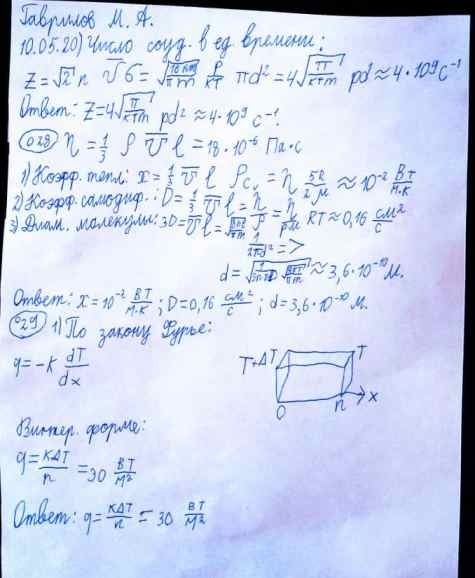 Гаврилов М. А.
10.05.20) Число соуд. в ед. времени:
Z = √2 n v̄ б = √(16кт/πm) P/кт πd² = 4√(π/ктm) pd² ≈ 4·10⁹ с⁻¹
Ответ: Z = 4√(π/ктm) pd² ≈ 4·10⁹ с⁻¹.
028 η = 1/3 ρ v̄ l = 18·10⁻⁶ Па·с
1) Коэфф. тепл: x = 1/3 v̄ l ρCᵥ = η 5R/2μ ≈ 10⁻² Вт/м·к
2) Коэфф. самодиф.: D = 1/3 v̄ l = η/ρ = η/pμ RT ≈ 0,16 см²/с
3) Диам. молекулы: 3D = v̄ l =
=>
d = ≈ 3,6·10⁻¹⁰ м.
Ответ: x = 10⁻² Вт/м·к; D = 0,16 см²/с; d = 3,6·10⁻¹⁰ м.
029 1) По закону Фурье:
q = -к dT/dx
T+ΔT T
0 n x
В интер. форме:
q = кΔT/n = 30 Вт/м²
Ответ: q = кΔT/n = 30 Вт/м²